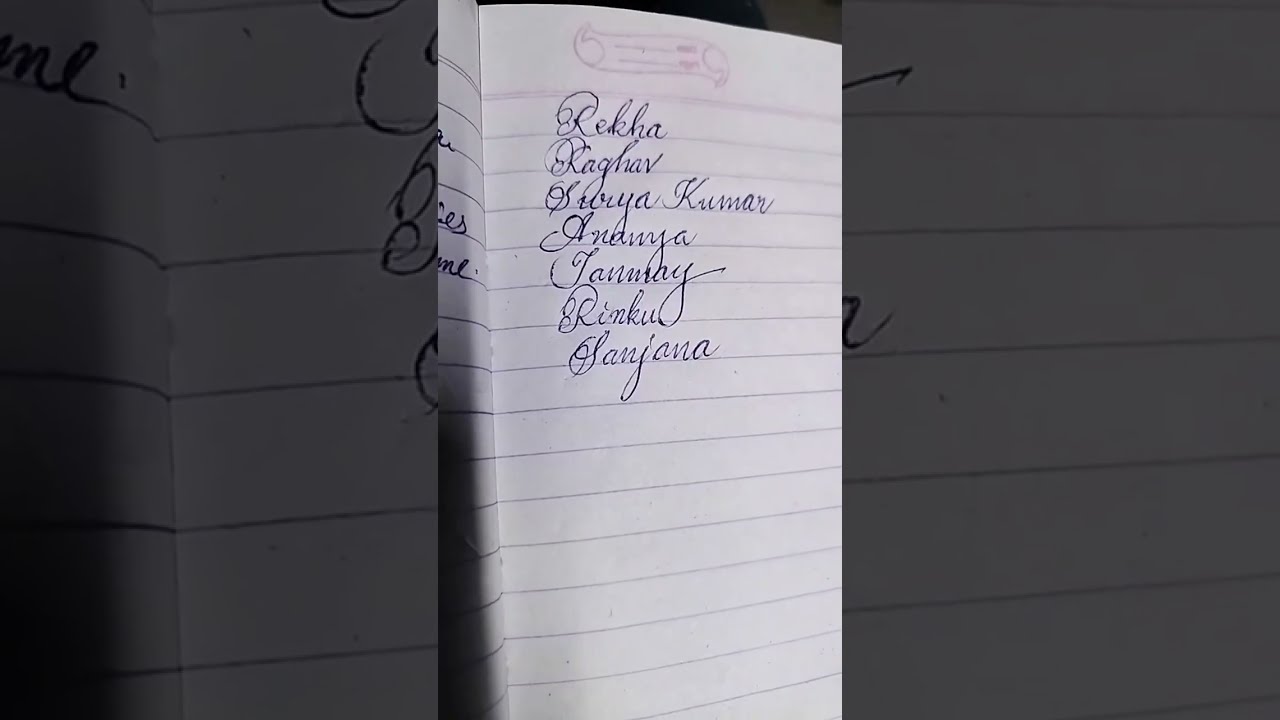 Rekha
Raghav
Surya Kumar
Ananya
Tanmay
Rinku
Sanjana